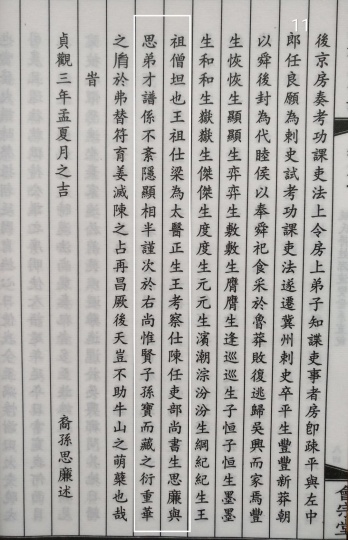 11
後京房奏考功課吏法上令房上弟子知課吏事者房卽疎平與左中
郎任良願為刺史試考功課吏法遂遷冀州刺史卒平生豐豐新莽朝
以舜後封為代睦侯以奉舜祀食采於魯莽敗復逃歸吳興而家焉豐
生恢恢生顯顯生弈弈生敷敷生膺膺生逢逢生巡巡生子恒子恒生墨墨
生和和生嶽嶽生傑傑生度度生元元生濱潮淙汾汾生綱紀紀生王
祖僧坦也王祖仕梁為太醫正生王考察仕陳任吏部尚書生思廉與
思弟才譜係不紊隱顯相半謹次於右尚惟賢子孫寶而藏之衍重華
之膺於弗替符育姜滅陳之占再昌厥後天豈不助牛山之萌蘖也哉
旹
貞觀三年孟夏月之吉
裔孫思廉述
會宗堂